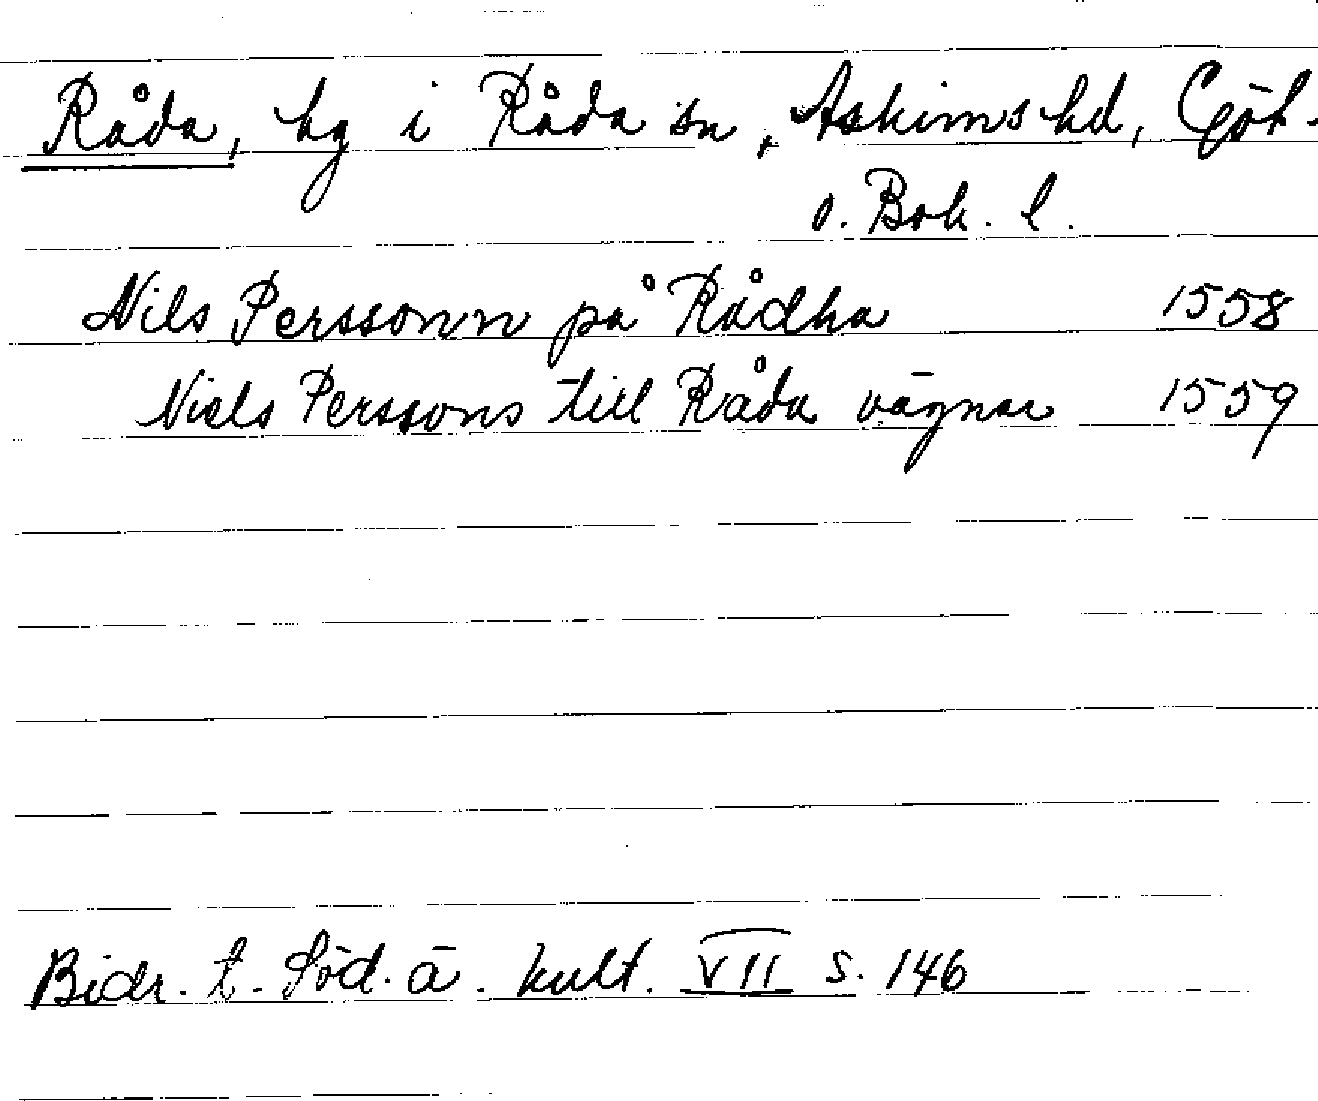 Råda, hg i Råda sn, Askims hd, Göt.
o. Boh. l.
Nils Perssonn på Rådha 1558
Niels Perssons till Råda vägnar 1559
Bidr. t. Söd. ä. kult. VII s. 146